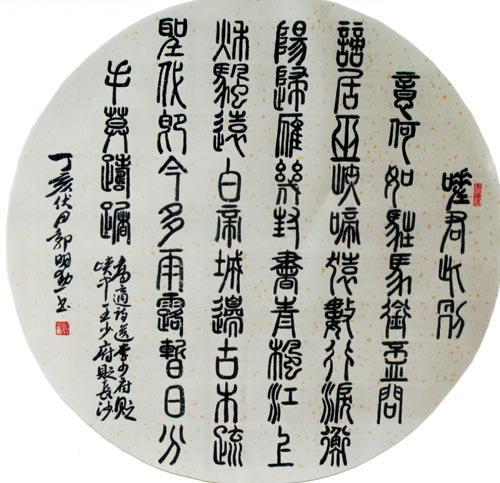 嗟君此别
意何如駐馬銜盃問
謫居巫峽啼猿數行淚衡
陽歸雁幾封書青楓江上
秋颿遠白帝城邊古木疏
聖代即今多雨露暫日分
手莫躊躇
高適詩送李少府貶
峡中王少府貶長沙
丁亥伏月郭明书